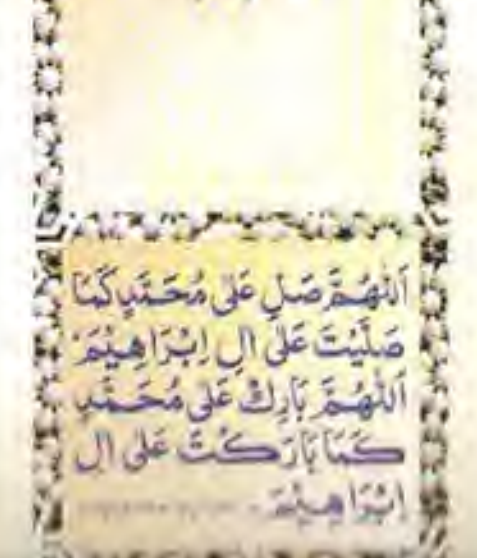 اَللّٰهُمَّ صَلِّ عَلٰى مُحَمَّدٍ كَمَا
صَلَّيْتَ عَلٰى اٰلِ اِبْرَاهِيْمَ
اَللّٰهُمَّ بَارِكْ عَلٰى مُحَمَّدٍ
كَمَا بَارَكْتَ عَلٰى اٰلِ
اِبْرَاهِيْمَ